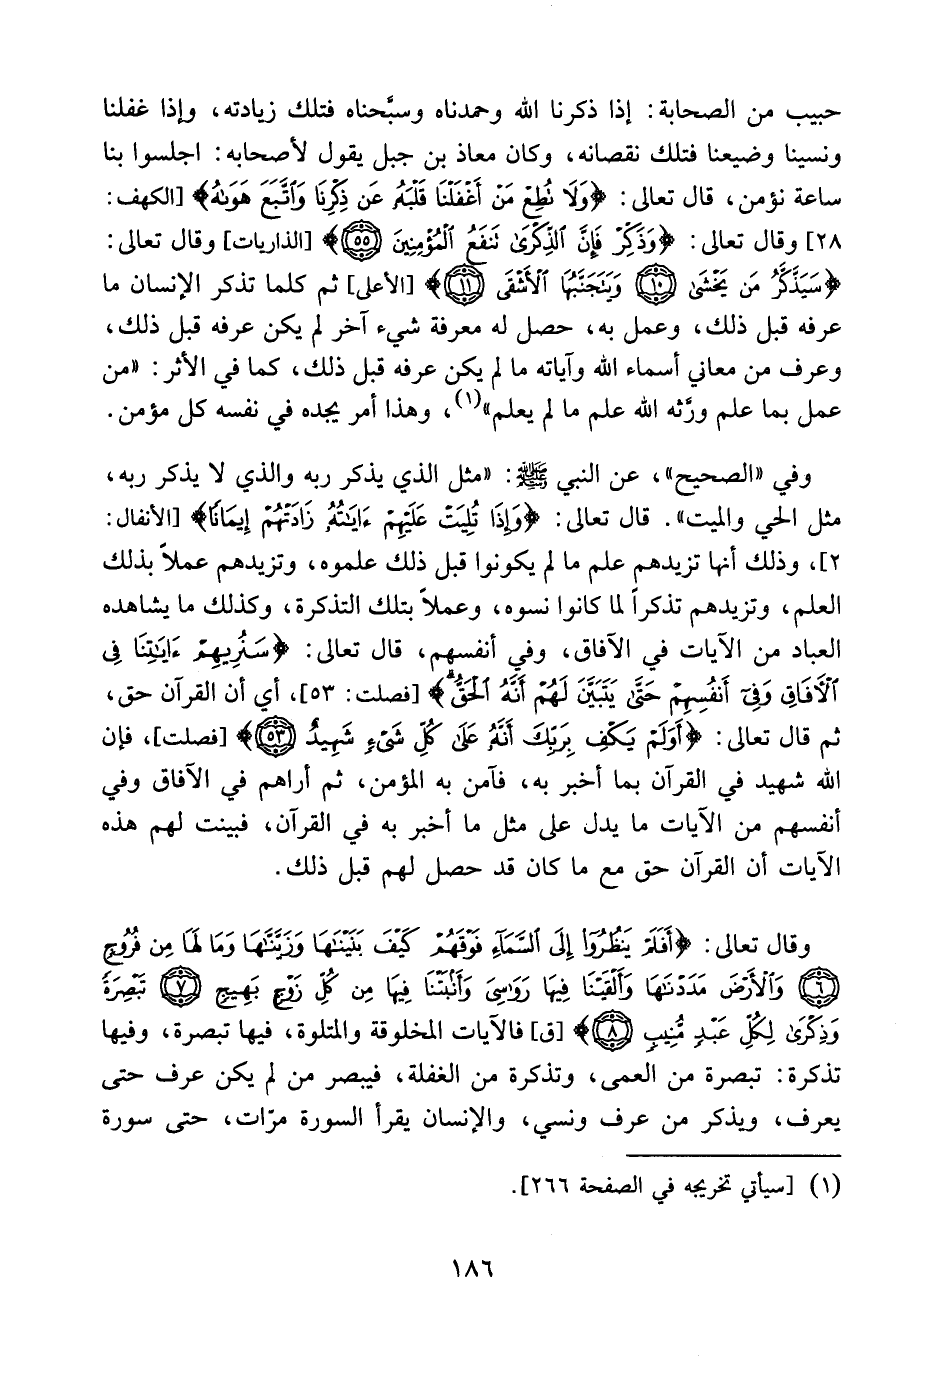 حبيب من الصحابة: إذا ذكرنا الله وحمدناه وسبَّحناه فتلك زيادته، وإذا غفلنا
ونسينا وضيعنا فتلك نقصانه، وكان معاذ بن جبل يقول لأصحابه: اجلسوا بنا
ساعة نؤمن، قال تعالى: ﴿وَلَا نُطِعْ مَنْ أَغْفَلْنَا قَلْبَهُۥ عَن ذِكْرِنَا وَٱتَّبَعَ هَوَىٰهُ﴾ [الكهف:
٢٨] وقال تعالى: ﴿وَذَكِّرْ فَإِنَّ ٱلذِّكْرَىٰ نَنفَعُ ٱلْمُؤْمِنِينَ ٥٥﴾ [الذاريات] وقال تعالى:
﴿سَيَذَّكَّرُ مَن يَخْشَىٰ ١٠ وَيَتَجَنَّبُهَا ٱلْأَشْقَى ١١﴾ [الأعلى] ثم كلما تذكر الإنسان ما
عرفه قبل ذلك، وعمل به، حصل له معرفة شيء آخر لم يكن عرفه قبل ذلك،
وعرف من معاني أسماء الله وآياته ما لم يكن عرفه قبل ذلك، كما في الأثر: «من
عمل بما علم ورَّثه الله علم ما لم يعلم»(١)، وهذا أمر يجده في نفسه كل مؤمن.
وفي «الصحيح»، عن النبي ﷺ: «مثل الذي يذكر ربه والذي لا يذكر ربه،
مثل الحي والميت». قال تعالى: ﴿وَإِذَا تُلِيَتْ عَلَيْهِمْ ءَايَـٰتُهُۥ زَادَتْهُمْ إِيمَـٰنًا﴾ [الأنفال:
٢]، وذلك أنها تزيدهم علم ما لم يكونوا قبل ذلك علموه، وتزيدهم عملاً بذلك
العلم، وتزيدهم تذكراً لما كانوا نسوه، وعملاً بتلك التذكرة، وكذلك ما يشاهده
العباد من الآيات في الآفاق، وفي أنفسهم، قال تعالى: ﴿سَنُرِيهِمْ ءَايَـٰتِنَا فِى
ٱلْـَٔافَاقِ وَفِىٓ أَنفُسِهِمْ حَتَّىٰ يَتَبَيَّنَ لَهُمْ أَنَّهُ ٱلْحَقُّ ۗ﴾ [فصلت: ٥٣]، أي أن القرآن حق،
ثم قال تعالى: ﴿أَوَلَمْ يَكْفِ بِرَبِّكَ أَنَّهُۥ عَلَىٰ كُلِّ شَىْءٍ شَهِيدٌ ٥٣﴾ [فصلت]، فإن
الله شهيد في القرآن بما أخبر به، فآمن به المؤمن، ثم أراهم في الآفاق وفي
أنفسهم من الآيات ما يدل على مثل ما أخبر به في القرآن، فبينت لهم هذه
الآيات أن القرآن حق مع ما كان قد حصل لهم قبل ذلك.
وقال تعالى: ﴿أَفَلَمْ يَنظُرُوٓا۟ إِلَى ٱلسَّمَآءِ فَوْقَهُمْ كَيْفَ بَنَيْنَـٰهَا وَزَيَّنَّـٰهَا وَمَا لَهَا مِن فُرُوجٍ
٦ وَٱلْأَرْضَ مَدَدْنَـٰهَا وَأَلْقَيْنَا فِيهَا رَوَٰسِىَ وَأَنۢبَتْنَا فِيهَا مِن كُلِّ زَوْجٍۭ بَهِيجٍ ٧ تَبْصِرَةً
وَذِكْرَىٰ لِكُلِّ عَبْدٍ مُّنِيبٍ ٨﴾ [ق] فالآيات المخلوقة والمتلوة، فيها تبصرة، وفيها
تذكرة: تبصرة من العمى، وتذكرة من الغفلة، فيبصر من لم يكن عرف حتى
يعرف، ويذكر من عرف ونسي، والإنسان يقرأ السورة مرّات، حتى سورة
(١) [سيأتي تخريجه في الصفحة ٢٦٦].
١٨٦